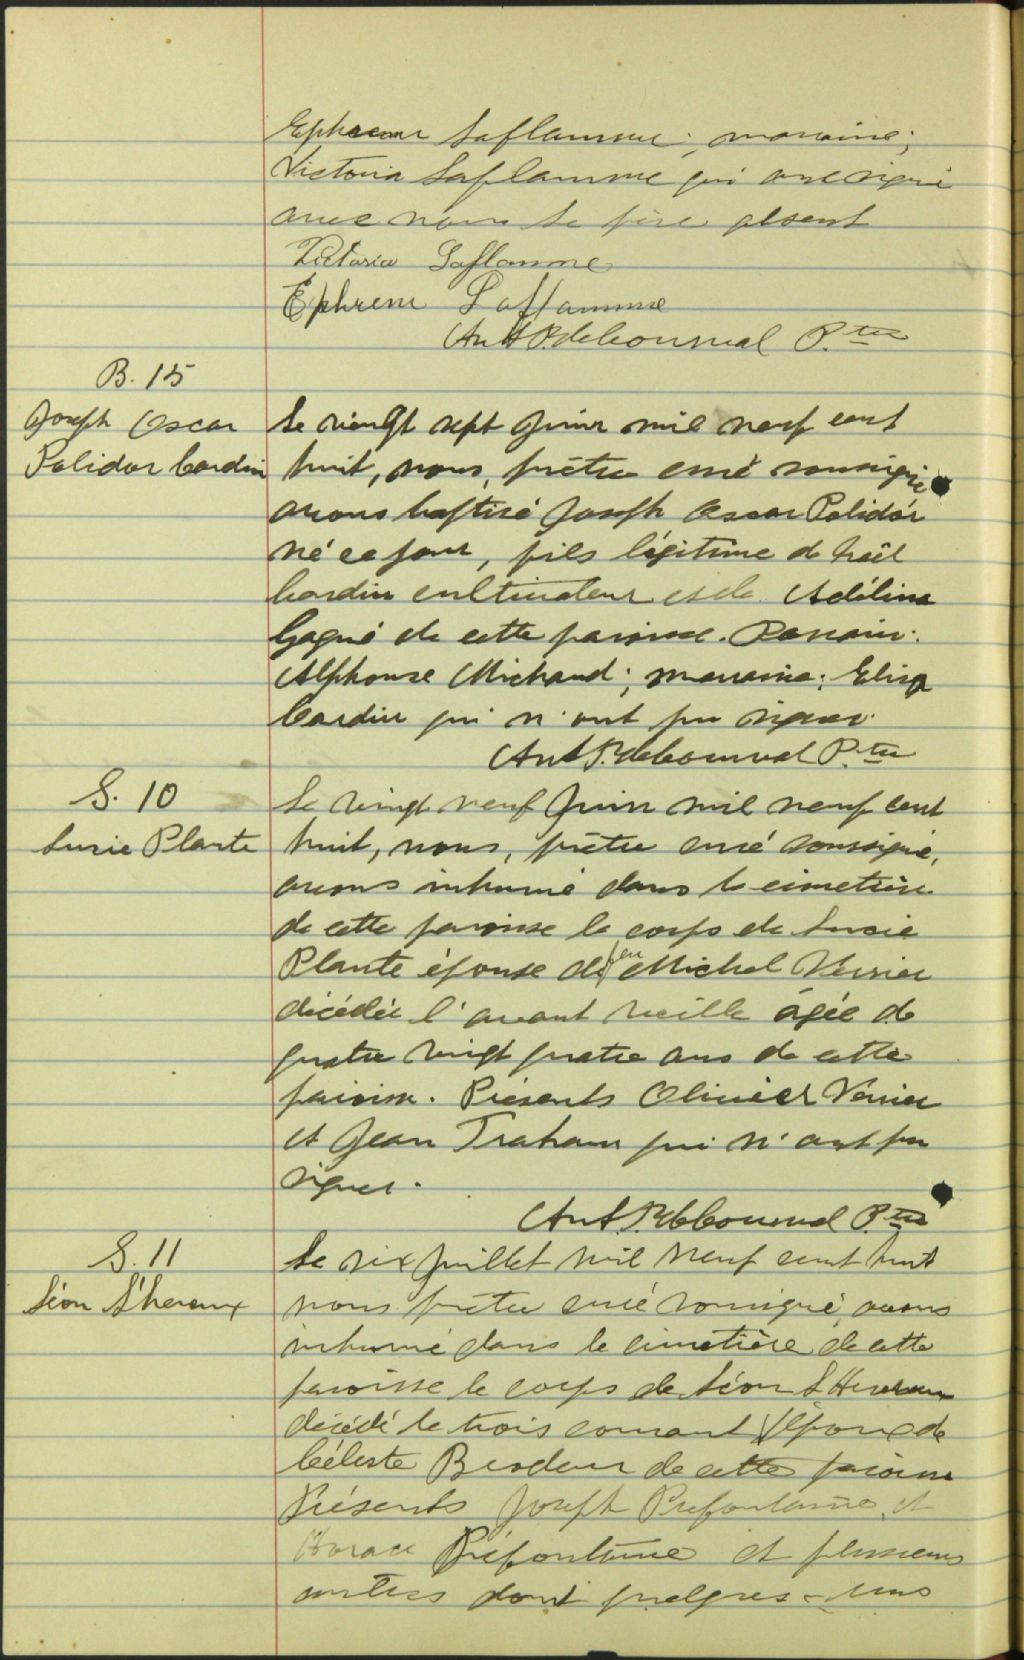 Ephrem Laflamme; marraine;
Victoria Laflamme qui ont signé
avec nous Le père absent
Victoria Laflamme
Ephrem Laflamme
Ant P. deCourval P.tre
B. 15
Joseph Oscar
Polidor Cardin
Le vingt sept Juin mil neuf cent
huit, nous, prêtre curé soussigné
avons baptisé Joseph Oscar Polidor
né ce jour, fils légitime de Noël
Cardin cultivateur et de Adélina
Gagné de cette paroisse. Parrain:
Alphonse Michaud; marraine: Eliza
Cardin qui n'ont pu signer.
Ant P. deCourval P.tre
S. 10
Lucie Plante
Le vingt neuf Juin mil neuf cent
huit, nous, prêtre curé soussigné,
avons inhumé dans le cimetière
de cette paroisse le corps de Lucie
Plante épouse de feu Michel Verrier
décédée l'avant veille âgée de
quatre vingt quatre ans de cette
paroisse. Présents Olivier Verrier
et Jean Traham qui n'ont pu
signer.
Ant P. deCourval P.tre
S. 11
Léon L'hereux
Le six Juillet mil neuf cent huit
nous prêtre curé soussigné, avons
inhumé dans le cimetière de cette
paroisse le corps de Léon L'Hereux
décédé le trois courant époux de
Céleste Brodeur de cette paroisse
Présents Joseph Prefontaine, et
Horace Préfontaine et plusieurs
autres dont quelques-uns